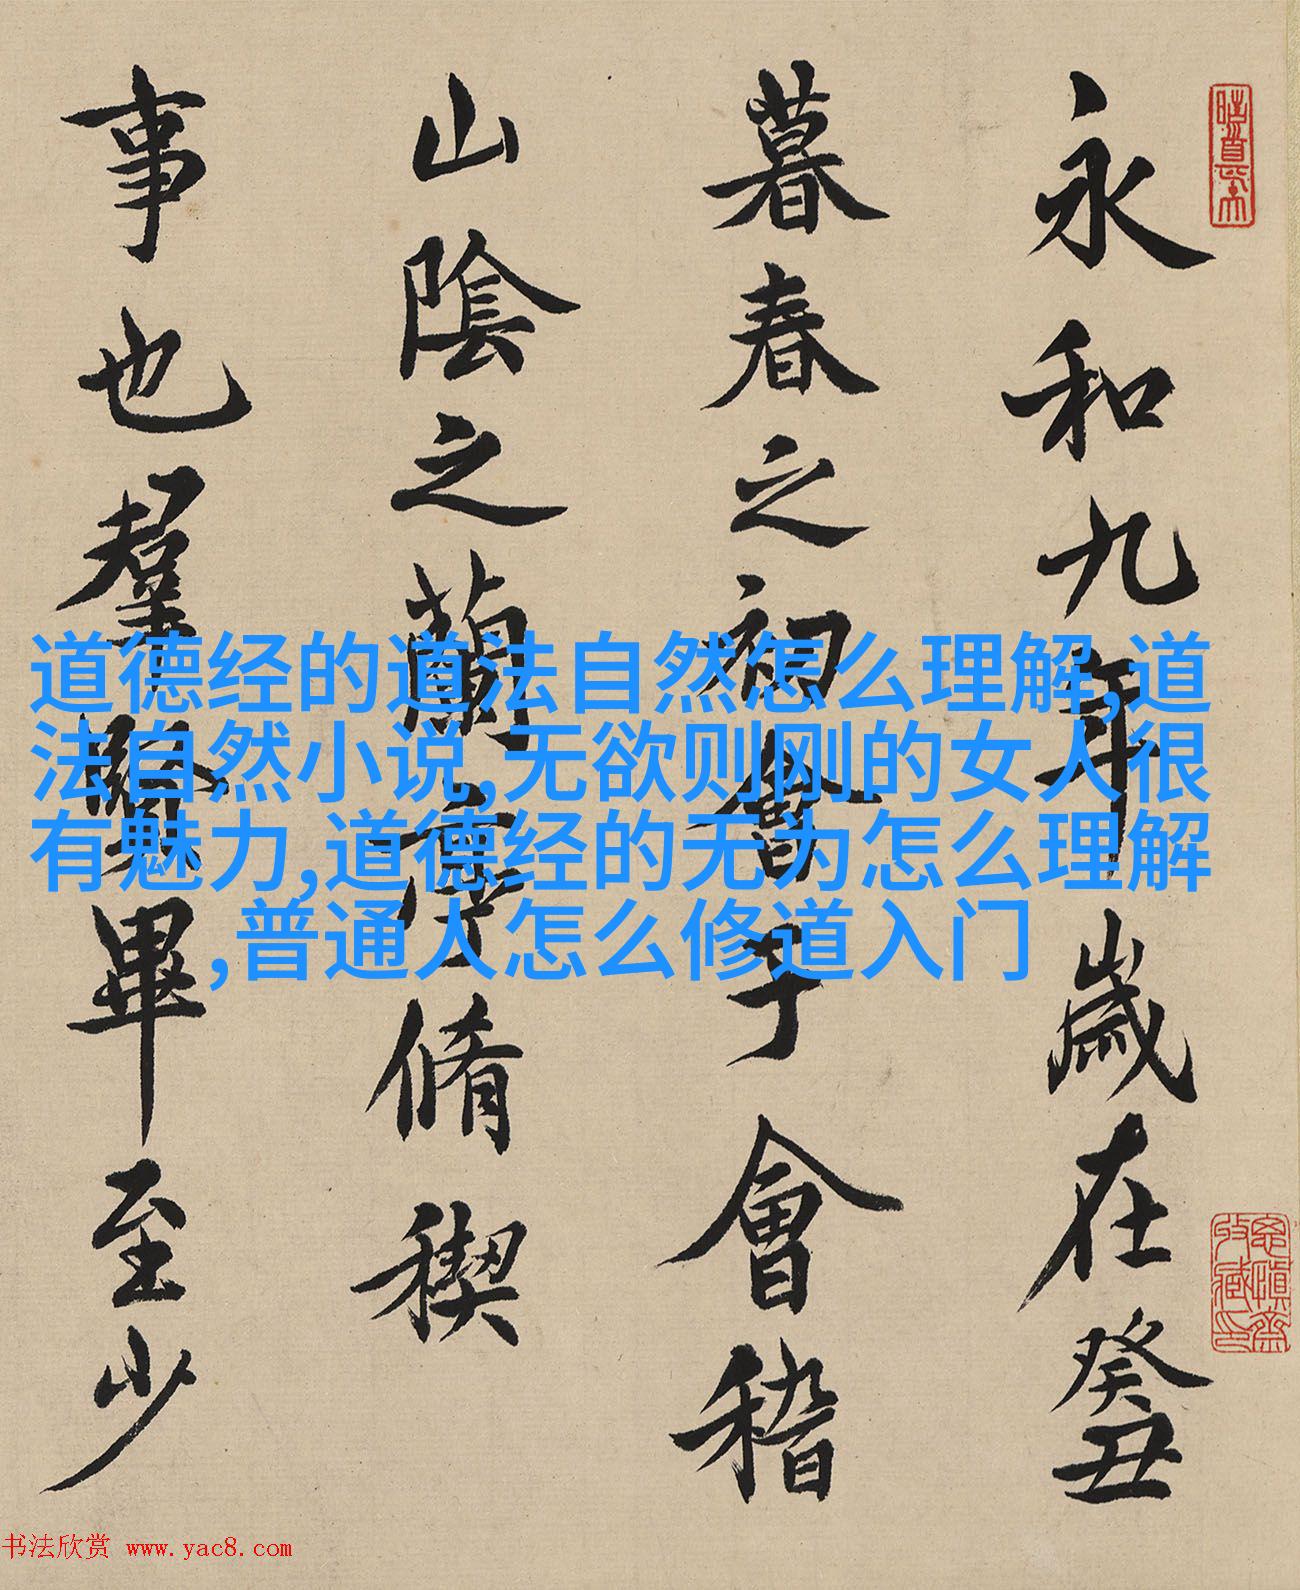 永和九年歲在癸丑
暮春之初會于會稽
山陰之蘭亭脩稧
事也羣賢畢至少
道德经的道法自然怎么理解,道
法自然小说,无欲则刚的女人很
有魅力,道德经的无为怎么理解
,普通人怎么修道入门
书法欣赏 www.yac8.com